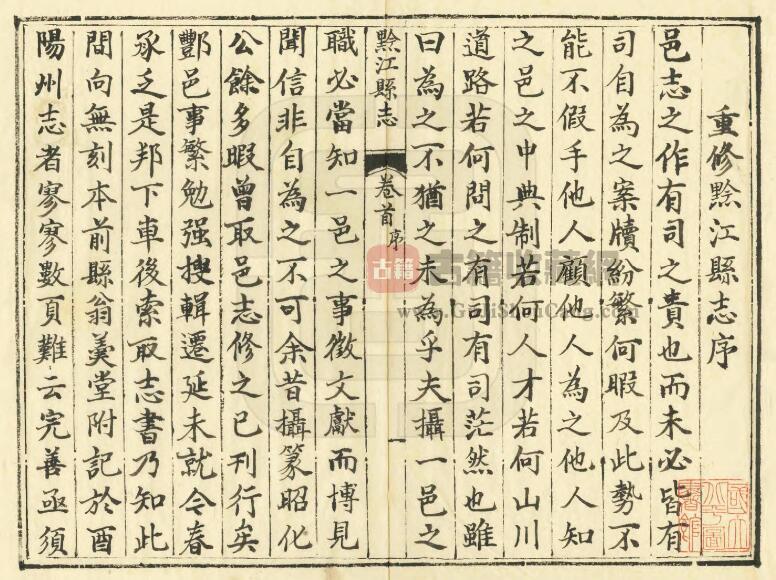 重修黔江縣志序
邑志之作有司之責也而未必皆有
司自為之案牘紛繁何暇及此勢不
能不假手他人顧他人為之他人知
之邑之中典制若何人才若何山川
道路若何問之有司有司茫然也雖
曰為之不猶之未為乎夫攝一邑之
黔江縣志 卷首 序 一
職必當知一邑之事徵文獻而博見
聞信非自為之不可余昔攝篆昭化
公餘多暇曾取邑志修之已刊行矣
酆邑事繁勉强搜輯遷延未就今春
承乏是邦下車後索取志書乃知此
間向無刻本前縣翁羹堂附記於酉
陽州志者寥寥數頁難云完善亟須
古籍
古籍收藏網
www.GuJiShuCang.com